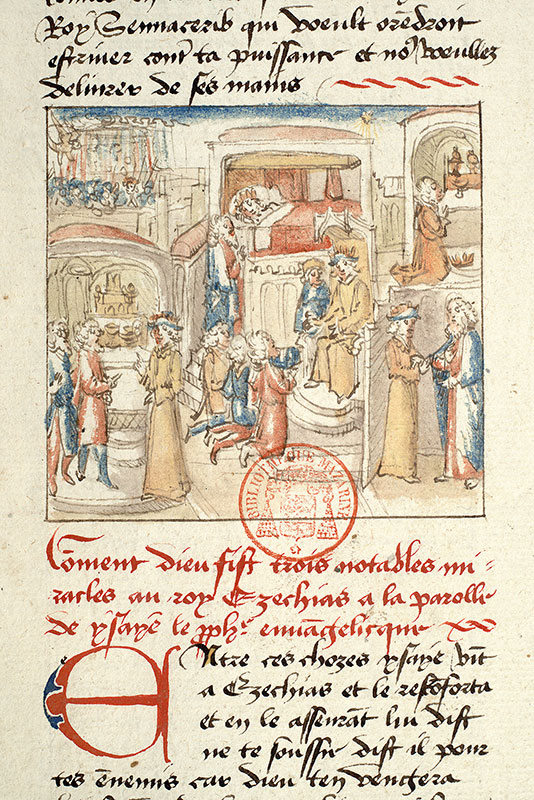 Roy Sennacerib qui voeult orēdroit
estriuer cont̄ ta puissance et no9 voeullez
deliurer de ses mains
BIBLIOTHEQUE MAZARINE
Coment dieu fist trois notables mi=
racles au roy Ezechias a la parolle
de ysaye le ꝓph̄e euuāgelicque
ENtre ces chozes ysaye vīt
a Ezechias et le recōforta
et en le asseurāt lui dist
ne te soussie dist il pour
tes ēnemis car dieu ten vengera